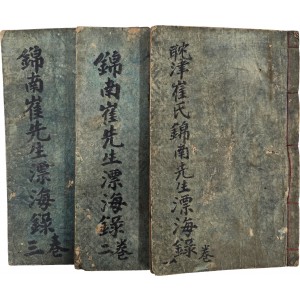 耽津崔氏錦南先生漂海錄 卷
錦南崔先生漂海錄 卷二
錦南崔先生漂海錄 卷三